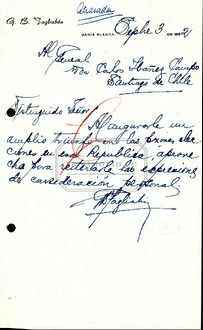 Avanzada
G. B. Tagliabúe
BAHIA BLANCA, Sepbre 3 de 1952
Al General
Don Carlos Ibáñez Campo
Santiago de Chile
Distinguido Señor
Al augurarle un
amplio triunfo en las proximas elec
ciones en esa Republica, aprove
cho para reiterarle las expresiones
de consideración personal.